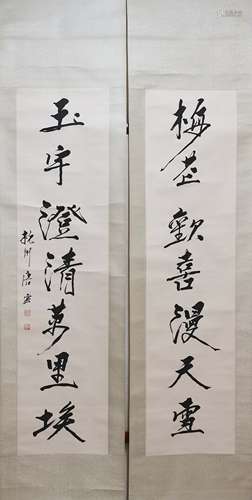 梅花歡喜漫天雪
玉宇澄清萬里埃